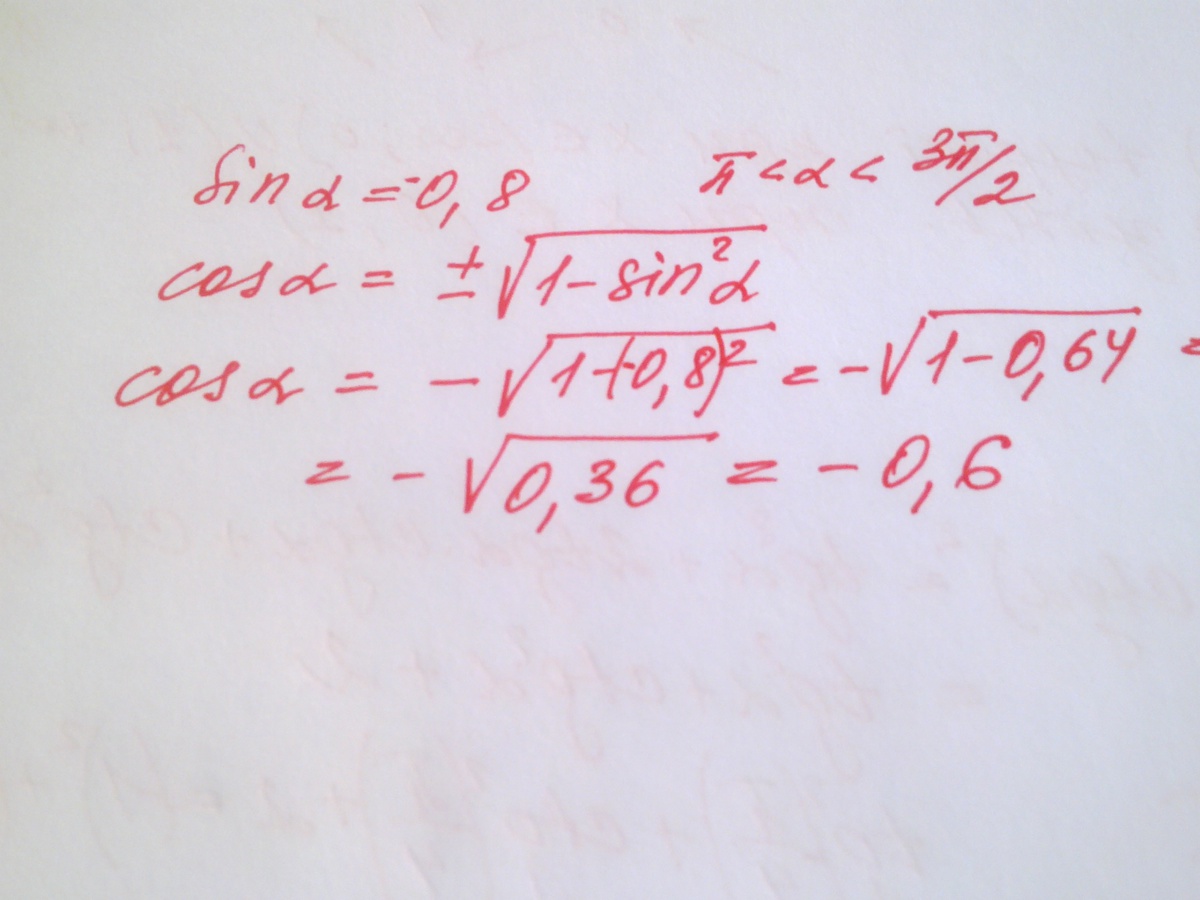 sin α = -0,8 π < α < 3π/2
cos α = ± √1 - sin²α
cos α = - √1-(-0,8)² = - √1 - 0,64 =
= - √0,36 = - 0,6